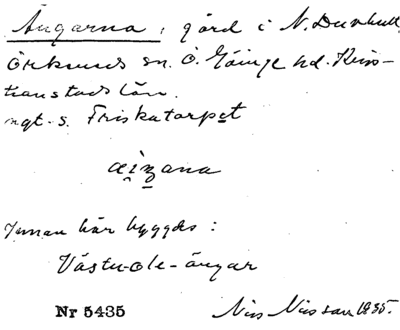 Ängarna, gård i N. Duvhult,
Örkeneds sn. Ö. Göinge hd. Kris-
tianstads län.
ngt. s. Friskatorpet
Innan här byggdes:
Västu-ole-ängar
Nr 5435 Nils Nilsson 1935.